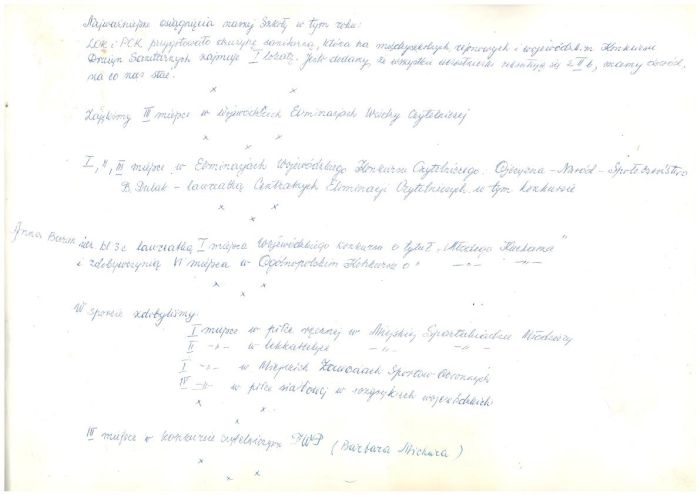 Najważniejsze osiągnięcia naszej Szkoły w tym roku:
LOK i PCK przygotowało drużynę sanitarną, która na międzyszkolnych, rejonowych i wojewódzkim Konkursie
Drużyn Sanitarnych zajmuje I lokatę. Jeśli dodamy, że wszystkie uczestniczki rekrutują się z II b, mamy dowód,
na co nas stać.
x x
x
Zajęliśmy III miejsce w Wojewódzkich Eliminacjach Wiedzy Czytelniczej
x x
x
I, II, III miejsce w Eliminacjach Wojewódzkiego Konkursu Czytelniczego. Ojczyzna - Naród - Społeczeństwo
B. - laureatką Centralnych Eliminacji Czytelniczych w tym konkursie
x x
x
Anna kl 3c laureatką I miejsca Wojewódzkiego konkursu o tytuł „Młodego Kucharza"
i zdobywczynią VI miejsca w Ogólnopolskim Konkursie o " -"- -"-
x x
x
W sporcie zdobyliśmy
I miejsce w piłce ręcznej w Miejskiej Spartakiadzie Młodzieży
II -"- w lekkoatletyce -"- -"-
I -"- w Miejskich Zawodach Sportowo-Obronnych
IV -"- w piłce siatkowej w rozgrywkach wojewódzkich
x x
x
III miejsce w konkursie czytelniczym TWP (Barbara Michura)
x x
x